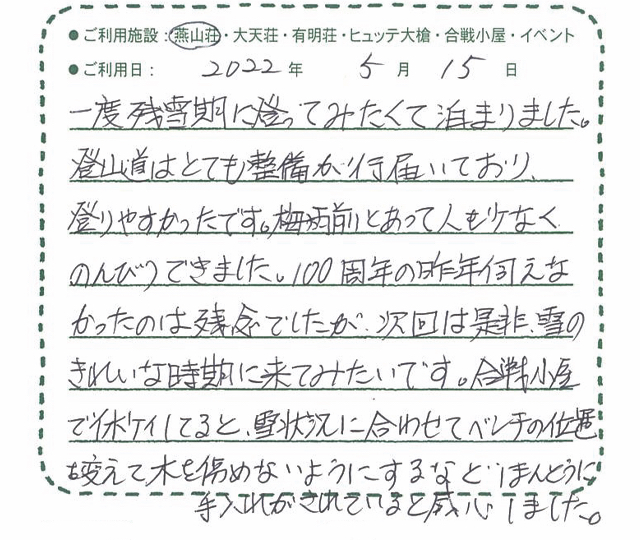 ●ご利用施設：燕山荘・大天荘・有明荘・ヒュッテ大槍・合戦小屋・イベント
●ご利用日： 2022 年 5 月 15 日
一度残雪期に登ってみたくて泊まりました。
登山道はとても整備が行届いており、
登りやすかったです。梅雨前とあって人も少なく
のんびりできました。100周年の昨年伺えな
かったのは残念でしたが、次回は是非、雪の
きれいな時期に来てみたいです。合戦小屋
でしてると、雪状況に合わせてベンチの位置
を変えて木を傷めないようにするなど、ほんとうに
手入れがされていると感心しました。